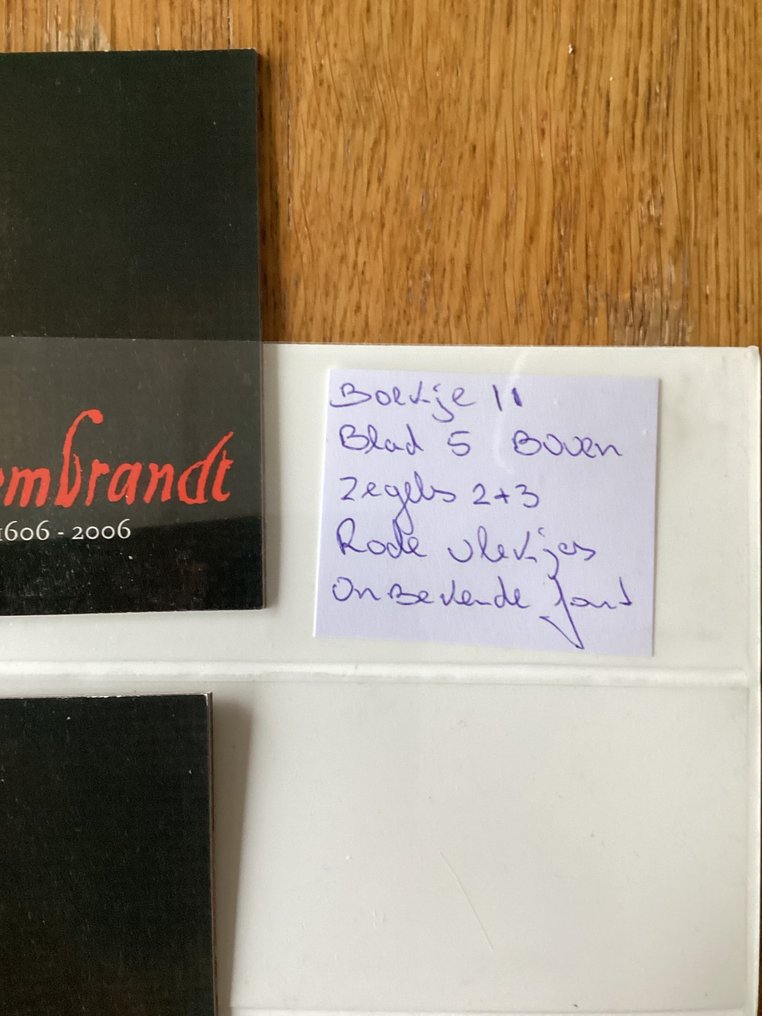 embrandt
1606 - 2006
Boekje 11
Blad 5 Boven
Zegels 2+3
Rode vlekjes
Onbekende fout